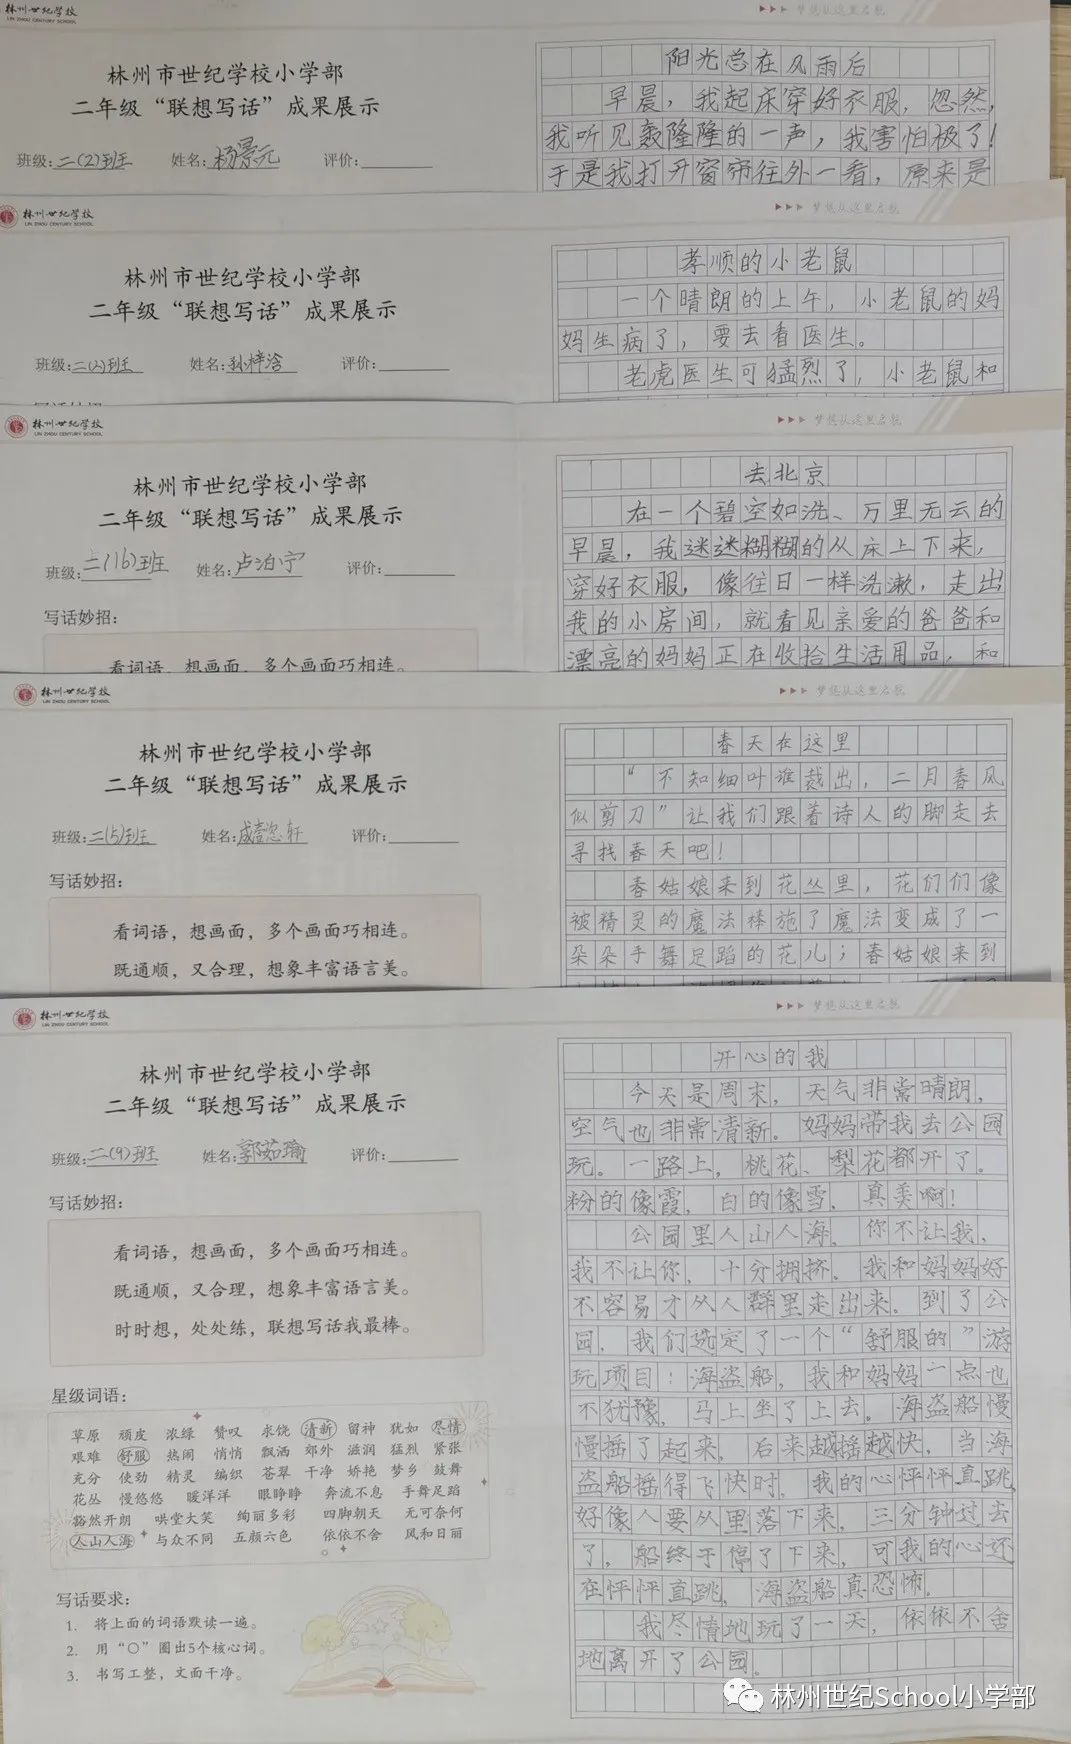 林州世纪学校
LIN ZHOU CENTURY SCHOOL
▶▶▶ 梦想从这里启航
林州市世纪学校小学部
二年级“联想写话”成果展示
班级:二(2)班 姓名:杨景元 评价:
阳光总在风雨后
早晨，我起床穿好衣服，忽然，
我听见轰隆隆的一声，我害怕极了!
于是我打开窗帘往外一看，原来是
林州世纪学校
LIN ZHOU CENTURY SCHOOL
▶▶▶ 梦想从这里启航
林州市世纪学校小学部
二年级“联想写话”成果展示
班级:二(2)班 姓名:孙梓涵 评价:
孝顺的小老鼠
一个晴朗的上午，小老鼠的妈
妈生病了，要去看医生。
老虎医生可猛烈了，小老鼠和
林州世纪学校
LIN ZHOU CENTURY SCHOOL
▶▶▶ 梦想从这里启航
林州市世纪学校小学部
二年级“联想写话”成果展示
班级:二(16)班 姓名:卢泊宁 评价:
写话妙招:
看词语，想画面，多个画面巧相连。
去北京
在一个碧空如洗、万里无云的
早晨，我迷迷糊糊的从床上下来，
穿好衣服，像往日一样洗漱，走出
我的小房间，就看见亲爱的爸爸和
漂亮的妈妈正在收拾生活用品，和
林州世纪学校
LIN ZHOU CENTURY SCHOOL
▶▶▶ 梦想从这里启航
林州市世纪学校小学部
二年级“联想写话”成果展示
班级:二(5)班 姓名:成懿轩 评价:
写话妙招:
看词语，想画面，多个画面巧相连。
既通顺，又合理，想象丰富语言美。
春天在这里
“不知细叶谁裁出，二月春风
似剪刀”让我们跟着诗人的脚走去
寻找春天吧!
春姑娘来到花丛里，花们们像
被精灵的魔法棒施了魔法变成了一
朵朵手舞足蹈的花儿；春姑娘来到
林州世纪学校
LIN ZHOU CENTURY SCHOOL
▶▶▶ 梦想从这里启航
林州市世纪学校小学部
二年级“联想写话”成果展示
班级:二(9)班 姓名:郭茹瑜 评价:
写话妙招:
看词语，想画面，多个画面巧相连。
既通顺，又合理，想象丰富语言美。
时时想，处处练，联想写话我最棒。
星级词语:
草原 顽皮 浓绿 赞叹 求饶 清新 留神 犹如 尽情
艰难 舒服 热闹 悄悄 飘洒 郊外 滋润 猛烈 紧张
充分 使劲 精灵 编织 苍翠 干净 娇艳 梦乡 鼓舞
花丛 慢悠悠 暖洋洋 眼睁睁 奔流不息 手舞足蹈
豁然开朗 哄堂大笑 绚丽多彩 四脚朝天 无可奈何
人山人海 与众不同 五颜六色 依依不舍 风和日丽
写话要求:
1. 将上面的词语默读一遍。
2. 用“○”圈出5个核心词。
3. 书写工整，文面干净。
开心的我
今天是周末，天气非常晴朗，
空气也非常清新。妈妈带我去公园
玩。一路上，桃花、梨花都开了。
粉的像霞，白的像雪，真美啊!
公园里人山人海，你不让我，
我不让你，十分拥挤。我和妈妈好
不容易才从人群里走出来。到了公
园，我们选定了一个“舒服的”游
玩项目：海盗船，我和妈妈一点也
不犹豫，马上坐了上去。海盗船慢
慢摇了起来，后来越摇越快，当海
盗船摇得飞快时，我的心怦怦直跳，
好像人要从里落下来，三分钟过去
了，船终于停了下来，可我的心还
在怦怦直跳，海盗船真恐怖。
我尽情地玩了一天，依依不舍
地离开了公园。
林州世纪School小学部